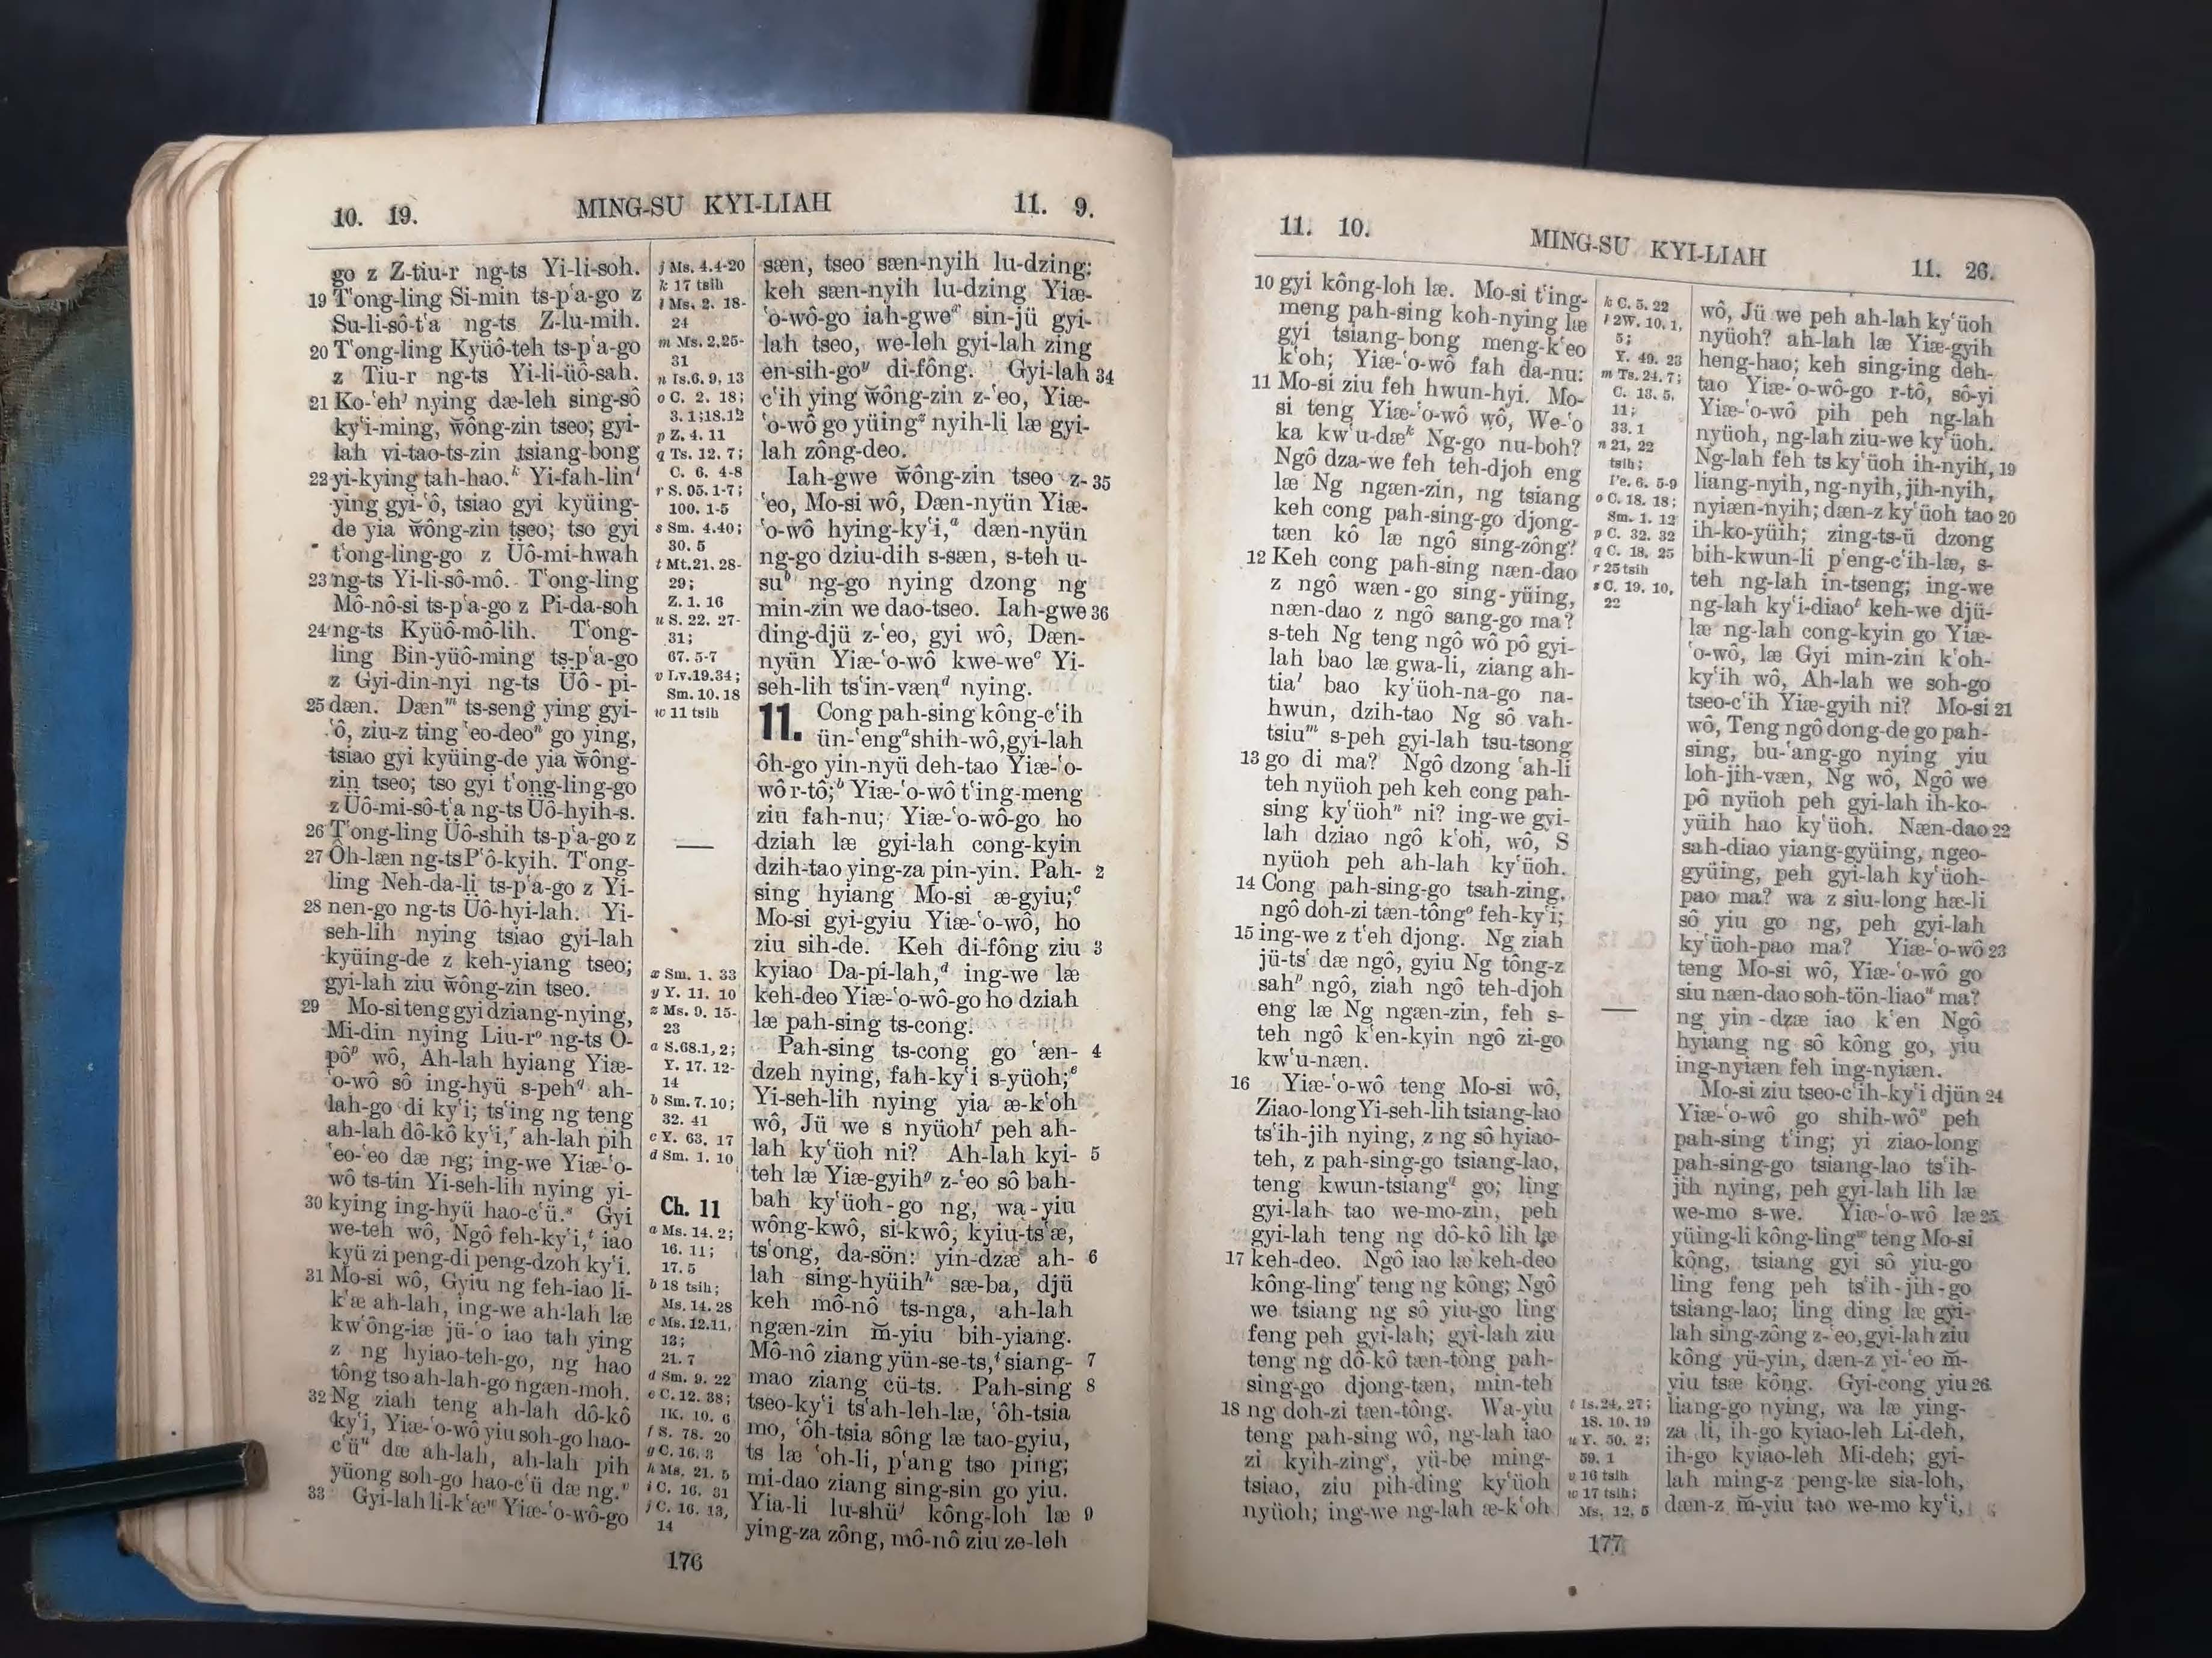 10. 19.
MING-SU KYI-LIAH
11. 9.
go z Z-tiu-r ng-ts Yi-li-soh.
19 T‘ong-ling Si-min ts-p‘a-go z
Su-li-sô-t‘a ng-ts Z-lu-mih.
20 T‘ong-ling Kyüô-teh ts-p‘a-go
z Tiu-r ng-ts Yi-li-üô-sah.
21 Ko-‘eh^j nying dæ-leh sing-sô
ky‘i-ming, w̆ông-zin tseo; gyi-
lah vi-tao-ts-zin tsiang-bong
22 yi-kying tah-hao.^k Yi-fah-lin^l
ying gyi-‘ô, tsiao gyi kyüing-
de yia w̆ông-zin tseo; tso gyi
t‘ong-ling-go z Üô-mi-hwah
23 ng-ts Yi-li-sô-mô. T‘ong-ling
Mô-nô-si ts-p‘a-go z Pi-da-soh
24 ng-ts Kyüô-mô-lih. T‘ong-
ling Bin-yüô-ming ts-p‘a-go
z Gyi-din-nyi ng-ts Üô-pi-
25 dæn. Dæn^m ts-seng ying gyi-
‘ô, ziu-z ting ‘eo-deo^n go ying,
tsiao gyi kyüing-de yia w̆ông-
zin tseo; tso gyi t‘ong-ling-go
z Üô-mi-sô-t‘a ng-ts Üô-hyih-s.
26 T‘ong-ling Üô-shih ts-p‘a-go z
27 Ôh-læn ng-ts P‘ô-kyih. T‘ong-
ling Neh-da-li ts-p‘a-go z Yi-
28 nen-go ng-ts Üô-hyi-lah. Yi-
seh-lih nying tsiao gyi-lah
kyüing-de z keh-yiang tseo;
gyi-lah ziu w̆ông-zin tseo.
29 Mo-si teng gyi dziang-nying,
Mi-din nying Liu-r^o ng-ts O-
pô^p wô, Ah-lah hyiang Yiæ-
‘o-wô sô ing-hyü s-peh^q ah-
lah-go di ky‘i; ts‘ing ng teng
ah-lah dô-kô ky‘i,^r ah-lah pih
‘eo-‘eo dæ ng; ing-we Yiæ-‘o-
wô ts-tin Yi-seh-lih nying yi-
30 kying ing-hyü hao-c‘ü.^s Gyi
we-teh wô, Ngô feh-ky‘i,^t iao
kyü zi peng-di peng-dzoh ky‘i.
31 Mo-si wô, Gyiu ng feh-iao li-
k‘æ ah-lah, ing-we ah-lah læ
kw‘ông-iæ jü-‘o iao tah ying
z ng hyiao-teh-go, ng hao
tông tso ah-lah-go ngæn-moh.
32 Ng ziah teng ah-lah dô-kô
ky‘i, Yiæ-‘o-wô yiu soh-go hao-
c‘ü^u dæ ah-lah, ah-lah pih
yüong soh-go hao-c‘ü dæ ng.^v
33 Gyi-lah li-k‘æ^w Yiæ-‘o-wô-go
j Ms. 4.4-20
k 17 tsih
l Ms. 2. 18-
24
m Ms. 2.25-
31
n Is.6. 9, 13
o C. 2. 18;
3. 1;18.12
p Z. 4. 11
q Ts. 12. 7;
C. 6. 4-8
r S. 95. 1-7;
100. 1-5
s Sm. 4.40;
30. 5
t Mt.21. 28-
29;
Z. 1. 16
u S. 22. 27-
31;
67. 5-7
v Lv.19.34;
Sm. 10. 18
w 11 tsih
x Sm. 1. 33
y Y. 11. 10
z Ms. 9. 15-
23
a S.68.1, 2;
Y. 17. 12-
14
b Sm. 7. 10;
32. 41
c Y. 63. 17
d Sm. 1. 10
Ch. 11
a Ms. 14. 2;
16. 11;
17. 5
b 18 tsih;
Ms. 14. 28
c Ms. 12.11,
13;
21. 7
d Sm. 9. 22
e C. 12. 38;
IK. 10. 6
f S. 78. 20
g C. 16. 3
h Ms. 21. 5
i C. 16. 31
j C. 16. 13,
14
sæn, tseo sæn-nyih lu-dzing;
keh sæn-nyih lu-dzing Yiæ-
‘o-wô-go iah-gwe^x sin-jü gyi-
lah tseo, we-leh gyi-lah zing
en-sih-go^y di-fông. Gyi-lah 34
c‘ih ying w̆ông-zin z-‘eo, Yiæ-
‘o-wô go yüing^z nyih-li læ gyi-
lah zông-deo.
Iah-gwe w̆ông-zin tseo z- 35
‘eo, Mo-si wô, Dæn-nyün Yiæ-
‘o-wô hying-ky‘i,^a dæn-nyün
ng-go dziu-dih s-sæn, s-teh u-
su^b ng-go nying dzong ng
min-zin we dao-tseo. Iah-gwe 36
ding-djü z-‘eo, gyi wô, Dæn-
nyün Yiæ-‘o-wô kwe-we^c Yi-
seh-lih ts‘in-væn^d nying.
11. Cong pah-sing kông-c‘ih
ün-‘eng^a shih-wô, gyi-lah
ôh-go yin-nyü deh-tao Yiæ-‘o-
wô r-tô;^b Yiæ-‘o-wô t‘ing-meng
ziu fah-nu; Yiæ-‘o-wô-go ho
dziah læ gyi-lah cong-kyin
dzih-tao ying-za pin-yin. Pah- 2
sing hyiang Mo-si æ-gyiu;^c
Mo-si gyi-gyiu Yiæ-‘o-wô, ho
ziu sih-de. Keh di-fông ziu 3
kyiao Da-pi-lah,^d ing-we læ
keh-deo Yiæ-‘o-wô-go ho dziah
læ pah-sing ts-cong.
Pah-sing ts-cong go ‘æn- 4
dzeh nying, fah-ky‘i s-yüoh;^e
Yi-seh-lih nying yia æ-k‘oh
wô, Jü we s nyüoh^f peh ah-
lah ky‘üoh ni? Ah-lah kyi- 5
teh læ Yiæ-gyih^g z-‘eo sô bah-
bah ky‘üoh-go ng, wa-yiu
wông-kwô, si-kwô, kyiu-ts‘æ,
ts‘ong, da-sön: yin-dzæ ah- 6
lah sing-hyüih^h sæ-ba, djü
keh mô-nô ts-nga, ah-lah
ngæn-zin m̆-yiu bih-yiang.
Mô-nô ziang yün-se-ts,^i siang- 7
mao ziang cü-ts. Pah-sing 8
tseo-ky‘i ts‘ah-leh-læ, ‘ôh-tsia
mo, ‘ôh-tsia sông læ tao-gyiu,
ts læ ‘oh-li, p‘ang tso ping;
mi-dao ziang sing-sin go yiu.
Yia-li lu-shü^j kông-loh læ 9
ying-za zông, mô-nô ziu ze-leh
176
11. 10.
MING-SU KYI-LIAH
11. 26.
10 gyi kông-loh læ. Mo-si t‘ing-
meng pah-sing koh-nying læ
gyi tsiang-bong meng-k‘eo
k‘oh; Yiæ-‘o-wô fah da-nu:
11 Mo-si ziu feh hwun-hyi. Mo-
si teng Yiæ-‘o-wô wô, We-‘o
ka kw‘u-dæ^k Ng-go nu-boh?
Ngô dza-we feh teh-djoh eng
læ Ng ngæn-zin, ng tsiang
keh cong pah-sing-go djong-
tæn kô læ ngô sing-zông?
12 Keh cong pah-sing næn-dao
z ngô wæn-go sing-yüing,
næn-dao z ngô sang-go ma?
s-teh Ng teng ngô wô pô gyi-
lah bao læ gwa-li, ziang ah-
tia^l bao ky‘üoh-na-go na-
hwun, dzih-tao Ng sô vah-
tsiu^m s-peh gyi-lah tsu-tsong
13 go di ma? Ngô dzong ‘ah-li
teh nyüoh peh keh cong pah-
sing ky‘üoh^n ni? ing-we gyi-
lah dziao ngô k‘oh, wô, S
nyüoh peh ah-lah ky‘üoh.
14 Cong pah-sing-go tsah-zing,
ngô doh-zi tæn-tông^o feh-ky‘i;
15 ing-we z t‘eh djong. Ng ziah
jü-ts‘ dæ ngô, gyiu Ng tông-z
sah^p ngô, ziah ngô teh-djoh
eng læ Ng ngæn-zin, feh s-
teh ngô k‘en-kyin ngô zi-go
kw‘u-næn.
16 Yiæ-‘o-wô teng Mo-si wô,
Ziao-long Yi-seh-lih tsiang-lao
ts‘ih-jih nying, z ng sô hyiao-
teh, z pah-sing-go tsiang-lao,
teng kwun-tsiang^q go; ling
gyi-lah tao we-mo-zin, peh
gyi-lah teng ng dô-kô lih læ
17 keh-deo. Ngô iao læ keh-deo
kông-ling^r teng ng kông; Ngô
we tsiang ng sô yiu-go ling
feng peh gyi-lah; gyi-lah ziu
teng ng dô-kô tæn-tông pah-
sing-go djong-tæn, min-teh
18 ng doh-zi tæn-tông. Wa-yiu
teng pah-sing wô, ng-lah iao
zi kyih-zing^s, yü-be ming-
tsiao, ziu pih-ding ky‘üoh
nyüoh; ing-we ng-lah æ-k‘oh
k C. 5. 22
l 2W. 10. 1,
5;
Y. 49. 23
m Ts. 24. 7;
C. 13. 5,
11;
33. 1
n 21, 22
tsih;
Pe. 6. 5-9
o C. 18. 18;
Sm. 1. 12
p C. 32. 32
q C. 18. 25
r 25 tsih
s C. 19. 10,
22
t Is. 24. 27;
18. 10. 19
u Y. 50. 2;
59. 1
v 16 tsih
w 17 tsih;
Ms. 12. 5
wô, Jü we peh ah-lah ky‘üoh
nyüoh? ah-lah læ Yiæ-gyih
heng-hao; keh sing-ing deh-
tao Yiæ-‘o-wô-go r-tô, sô-yi
Yiæ-‘o-wô pih peh ng-lah
nyüoh, ng-lah ziu-we ky‘üoh.
Ng-lah feh ts ky‘üoh ih-nyih, 19
liang-nyih, ng-nyih, jih-nyih,
nyiæn-nyih; dæn-z ky‘üoh tao 20
ih-ko-yüih; zing-ts-ü dzong
bih-kwun-li p‘eng-c‘ih-læ, s-
teh ng-lah in-tseng; ing-we
ng-lah ky‘i-diao^t keh-we djü-
læ ng-lah cong-kyin go Yiæ-
‘o-wô, læ Gyi min-zin k‘oh-
ky‘ih wô, Ah-lah we soh-go
tseo-c‘ih Yiæ-gyih ni? Mo-si 21
wô, Teng ngô dong-de go pah-
sing, bu-‘ang-go nying yiu
loh-jih-væn, Ng wô, Ngô we
pô nyüoh peh gyi-lah ih-ko-
yüih hao ky‘üoh. Næn-dao 22
sah-diao yiang-gyüing, ngeo-
gyüing, peh gyi-lah ky‘üoh-
pao ma? wa z siu-long hæ-li
sô yiu go ng, peh gyi-lah
ky‘üoh-pao ma? Yiæ-‘o-wô 23
teng Mo-si wô, Yiæ-‘o-wô go
siu næn-dao soh-tön-liao^u ma?
ng yin-dzæ iao k‘en Ngô
hyiang ng sô kông go, yiu
ing-nyiæn feh ing-nyiæn.
Mo-si ziu tseo-c‘ih-ky‘i djün 24
Yiæ-‘o-wô go shih-wô^v peh
pah-sing t‘ing; yi ziao-long
pah-sing-go tsiang-lao ts‘ih-
jih nying, peh gyi-lah lih læ
we-mo s-we. Yiæ-‘o-wô læ 25
yüing-li kông-ling^w teng Mo-si
kông, tsiang gyi sô yiu-go
ling feng peh ts‘ih-jih-go
tsiang-lao; ling ding læ gyi-
lah sing-zông z-‘eo, gyi-lah ziu
kông yü-yin, dæn-z yi-‘eo m̆-
yiu tsæ kông. Gyi-cong yiu 26
liang-go nying, wa læ ying-
za li, ih-go kyiao-leh Li-deh,
ih-go kyiao-leh Mi-deh; gyi-
lah ming-z peng-læ sia-loh,
dæn-z m̆-yiu tao we-mo ky‘i,
177